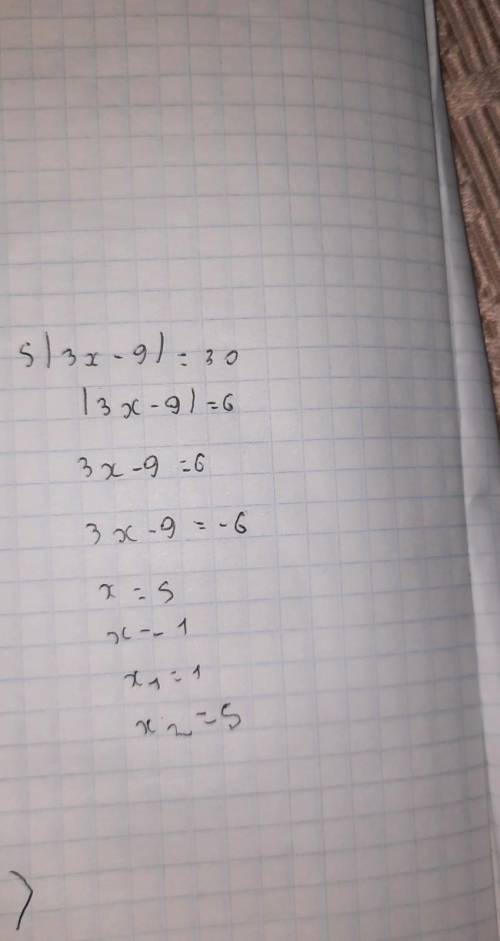 5|3x-9|=30
|3x-9|=6
3x-9=6
3x-9=-6
x=5
x=1
x₁=1
x₂=5
)